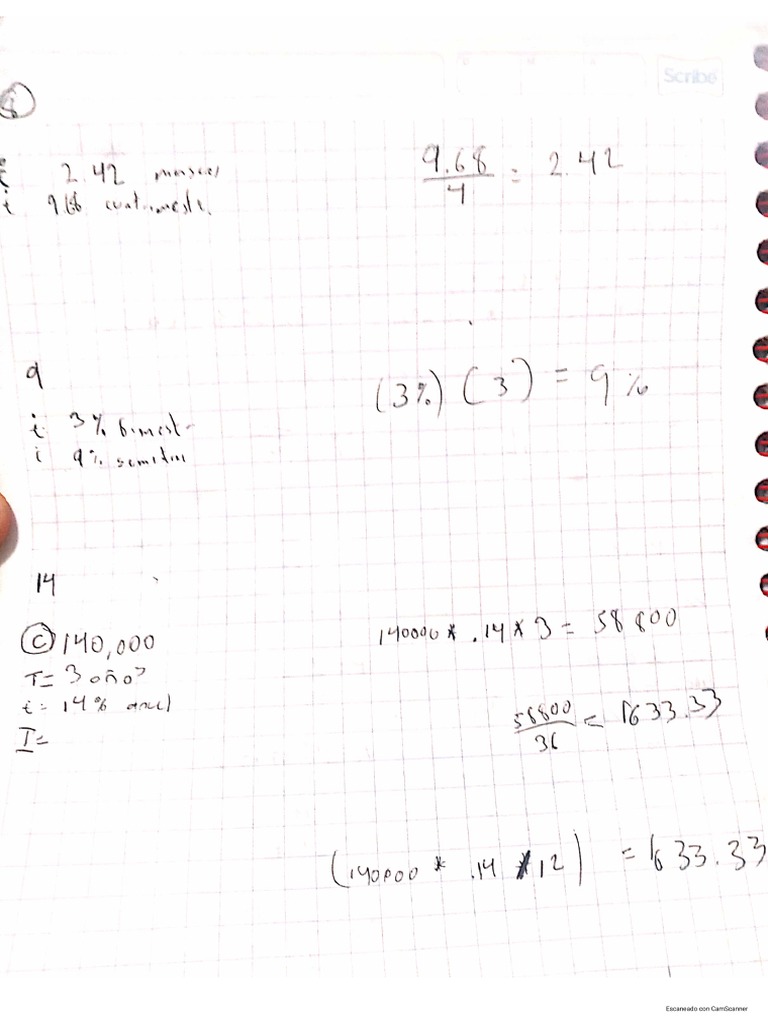 Scribe
8
i 2.42 mensual
9.68/4 = 2.42
i 9.68 cuatrimestr.
9
(3%) (3) = 9%
i 3% bimest-
i 9% semestra
14
C 140,000
140000 * .14 * 3 = 58 800
T= 3 años
i= 14% anual
58800/36 = 1633.33
I=
(140000 * .14 / 12) = 1633.33
Escaneado con CamScanner